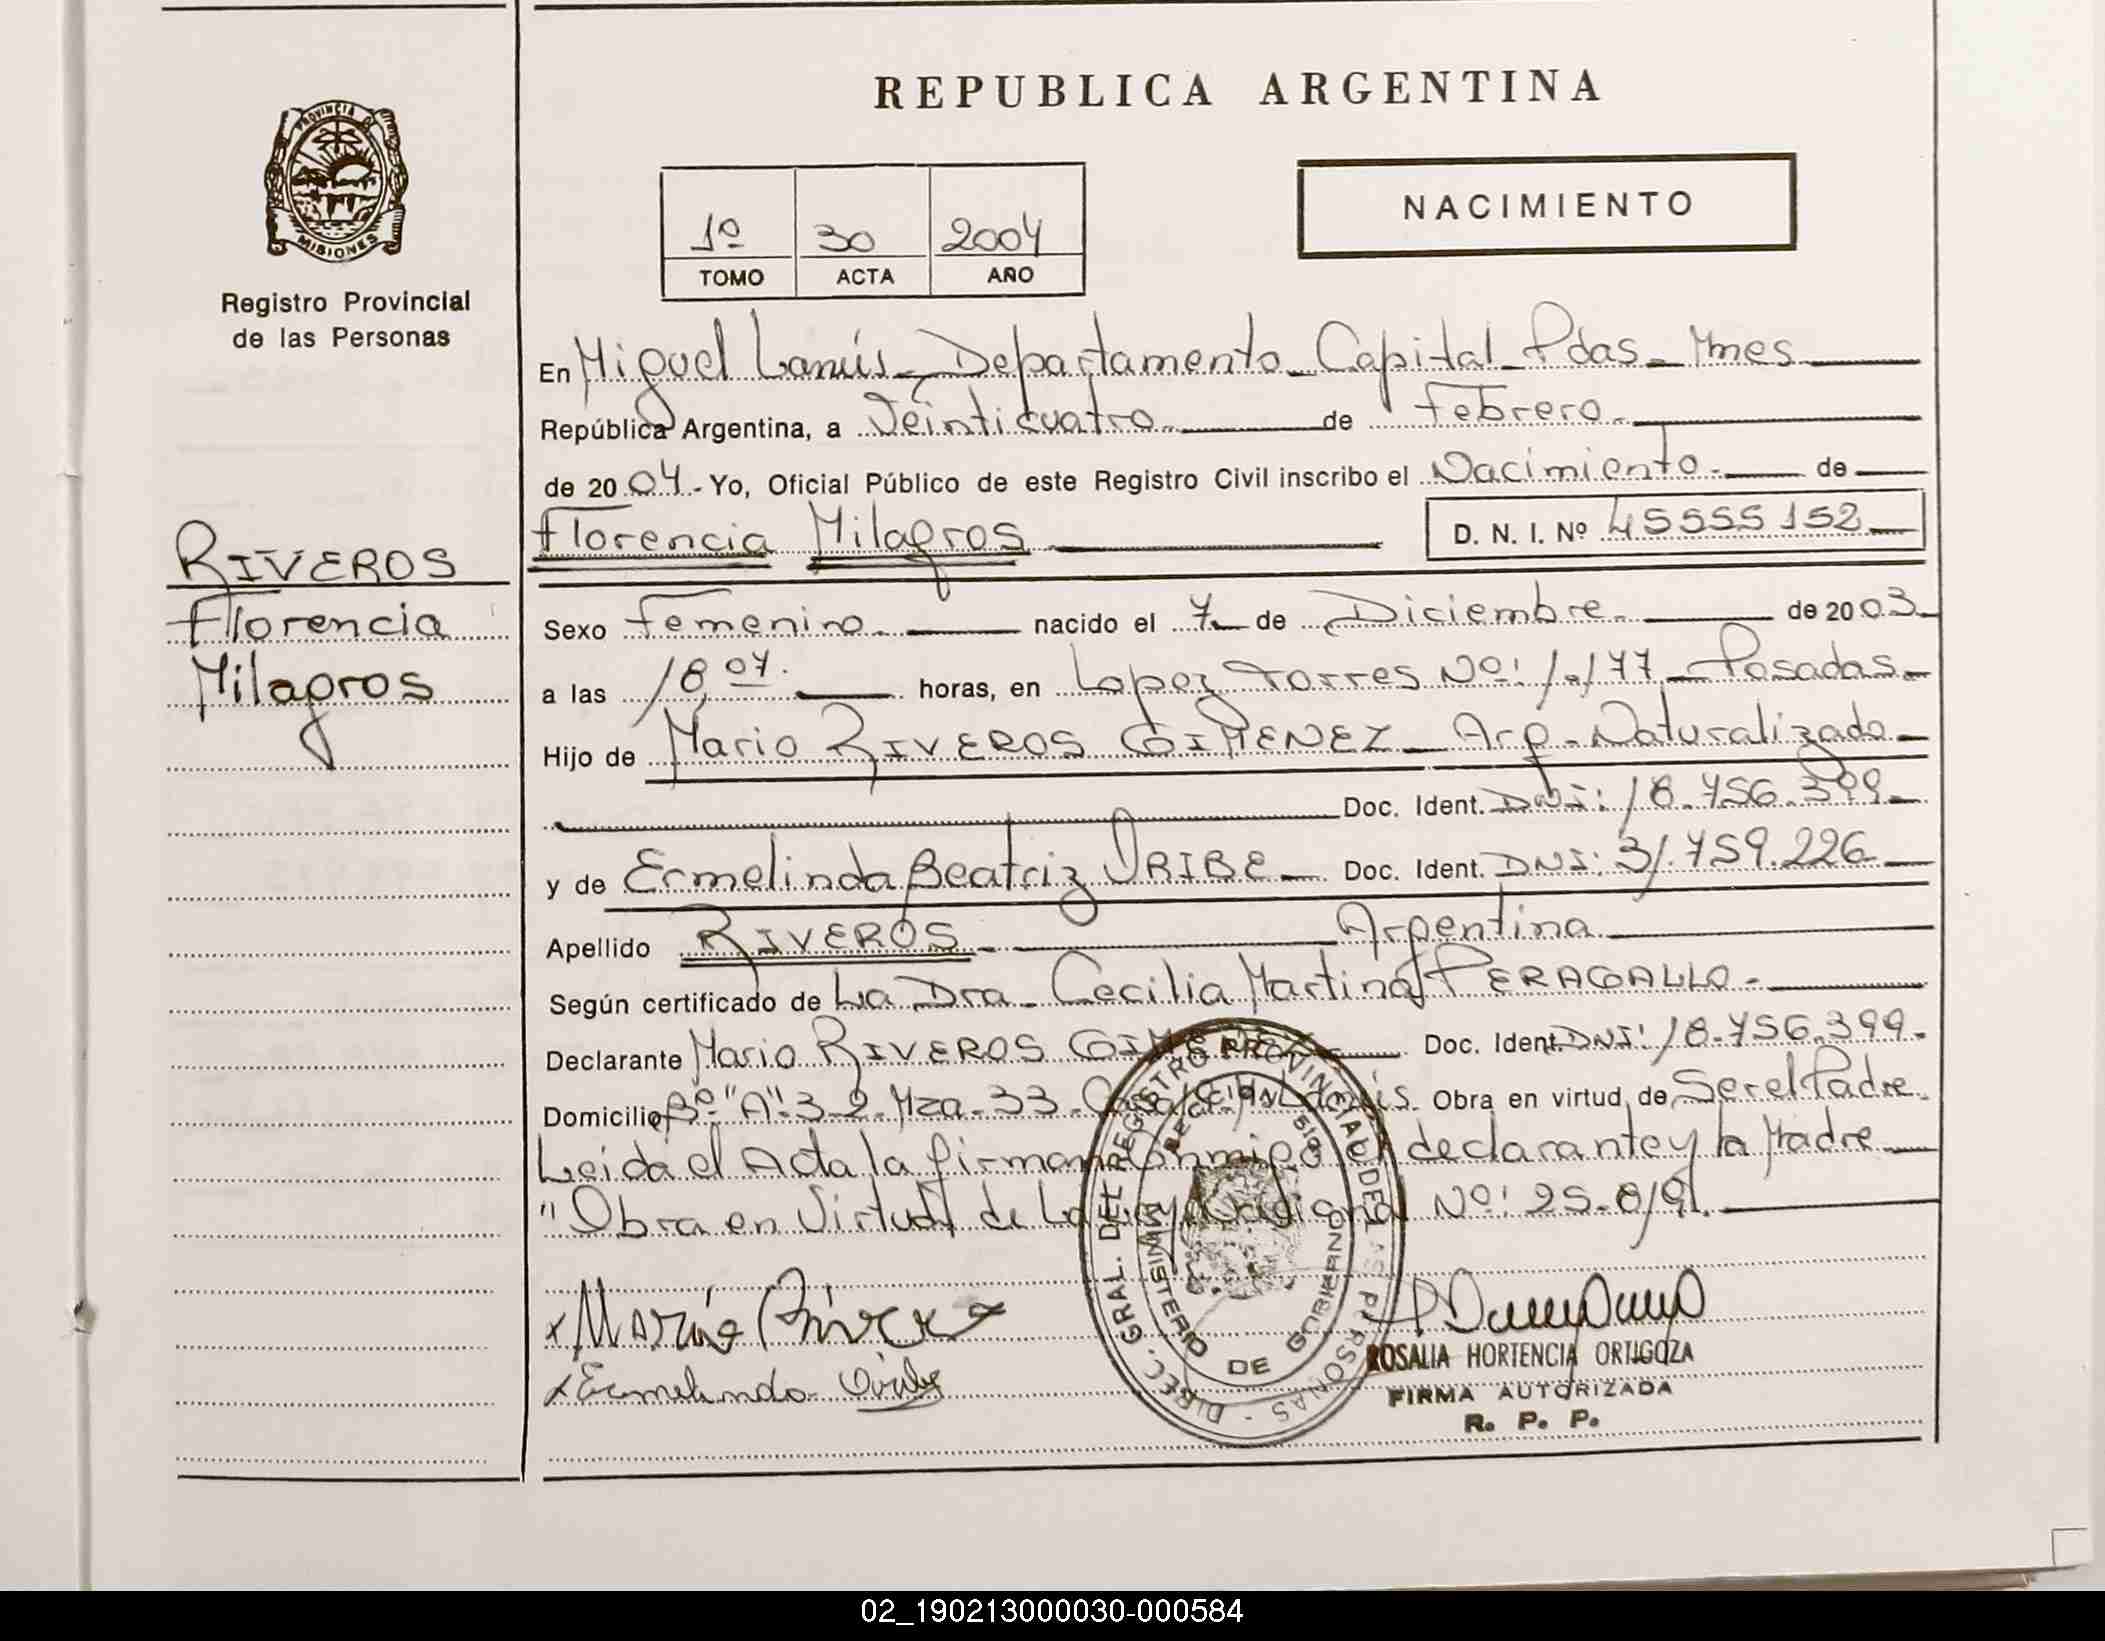 REPUBLICA ARGENTINA
PROVINCIA DE
MISIONES
Registro Provincial
de las Personas
1º 30 2004
TOMO ACTA AÑO
NACIMIENTO
En Miguel Lanús - Departamento - Capital - Pdas - Mnes
República Argentina, a Veinticuatro de Febrero
de 2004 - Yo, Oficial Público de este Registro Civil inscribo el Nacimiento de
Florencia Milagros D. N. I. Nº 45555152
RIVEROS
Florencia
Milagros
Sexo Femenino nacido el 7 de Diciembre de 2003
a las 18,07 horas, en Lopez Torres Nº: 1.177 - Posadas -
Hijo de Mario RIVEROS GIMENEZ - Arg - Naturalizado -
Doc. Ident. DNI: 18.756.399 -
y de Ermelinda Beatriz URIBE - Doc. Ident. DNI: 31.759.226
Apellido RIVEROS - Argentina
Según certificado de La Dra - Cecilia Martina PERAGALLO -
Declarante Mario RIVEROS GIMENEZ Doc. Ident. DNI: 18.756.399 -
Domicilio Bº "A" 3-2 - Mza - 33 - Lanús. Obra en virtud de Ser el Padre
Leida el Acta la firman conmigo el declarante y la Madre
"Obra en Virtud de La Ley Nacional Nº: 25.819.
DIREC. GRAL. DEL REGISTRO PROVINCIAL DE LAS PERSONAS
MINISTERIO DE GOBIERNO
x Mario Rivero
x Ermelinda Uribe
ROSALIA HORTENCIA ORTIGOZA
FIRMA AUTORIZADA
R. P. P.
02_190213000030-000584